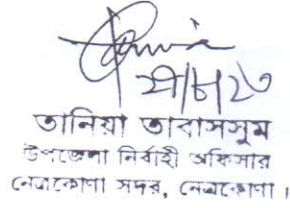 ২৭/৮/২৩
তানিয়া তাবাসসুম
উপজেলা নির্বাহী অফিসার
নেত্রকোণা সদর, নেত্রকোণা।